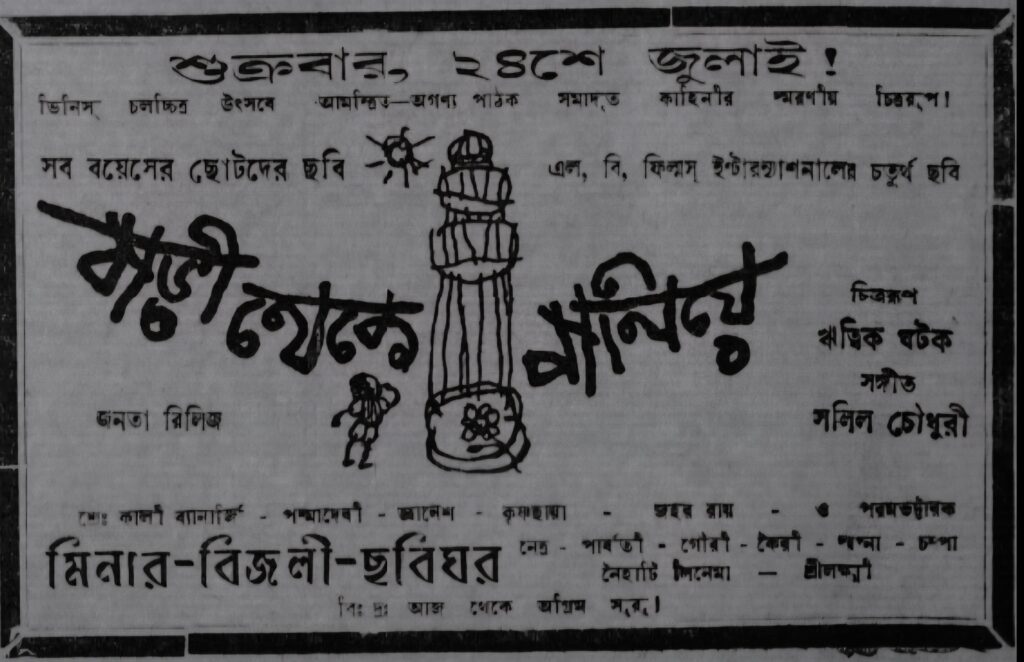 শুক্রবার, ২৪শে জুলাই !
ভিনিস্ চলচ্চিত্র উৎসবে আমন্ত্রিত—অগণ্য পাঠক সমাদৃত কাহিনীর স্মরণীয় চিত্ররূপ।
সব বয়েসের ছোটদের ছবি
এল, বি, ফিল্মস্ ইন্টারন্যাশনালের চতুর্থ ছবি
বাড়ী থেকে পালিয়ে
চিত্ররূপ
ঋত্বিক ঘটক
সঙ্গীত
সলিল চৌধুরী
জনতা রিলিজ
শ্রেঃ কালী ব্যানার্জি - পদ্মাদেবী - জ্ঞানেশ - কৃষ্ণছায়া - জহর রায় - ও পরমভট্টারক
মিনার-বিজলী-ছবিঘর
নেত্র - পার্বতী - গৌরী - কৈরী - পদ্মা - চম্পা
নৈহাটি সিনেমা — শ্রীলক্ষ্মী
বিঃ দ্রঃ আজ থেকে অগ্রিম সুরু।